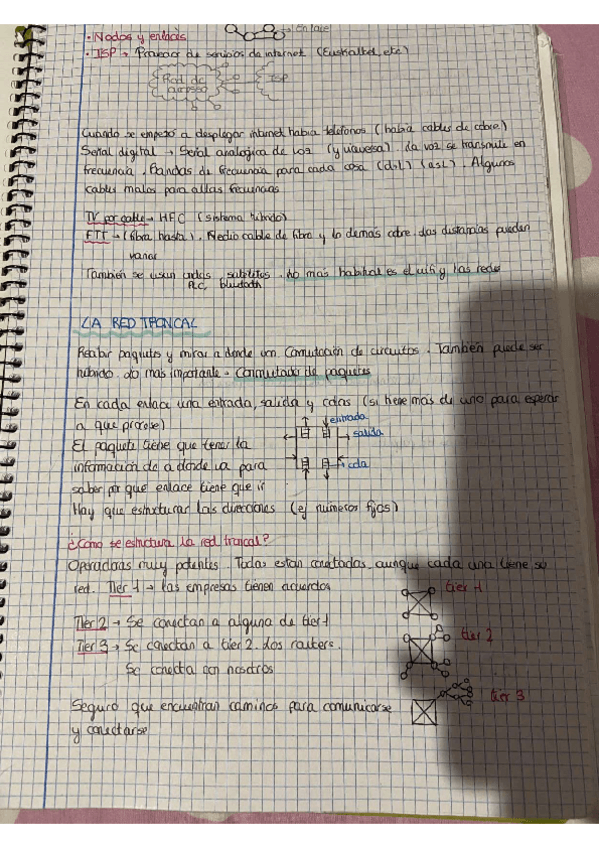 · Nodos y enlaces → Enlace
· ISP → Proveedor de servicios de internet (Euskaltel, etc)
Red de acceso ISP
Cuando se empezó a desplegar internet había teléfonos (había cables de cobre)
Señal digital → Señal analógica de voz (y viceversa). La voz se transmite en
frecuencia. Bandas de frecuencia para cada cosa (dsL) (asL). Algunos
cables malos para altas frecuencias
TV por cable → HFC (sistema híbrido)
FTT → (fibra hasta). Medio cable de fibra y lo demás cobre. Las distancias pueden
variar
También se usan ondas, satélites. Lo más habitual es el wifi y las redes
PLC, bluetooth
LA RED TRONCAL
Recibir paquetes y mirar a donde van. Conmutación de circuitos. También puede ser
híbrido. Lo más importante → Conmutado de paquetes
En cada enlace una entrada, salida y colas (si tiene mas de uno para esperar
a que procese)
entrada
El paquete tiene que tener la
salida
información de a donde va para
cola
saber por qué enlace tiene que ir
Hay que estructurar las direcciones (ej números fijos)
¿Cómo se estructura la red troncal?
Operadoras muy potentes. Todas están conectadas, aunque cada una tiene su
red. Tier 1 → Las empresas tienen acuerdos
tier 1
Tier 2 → Se conectan a alguna de tier 1
tier 2
Tier 3 → Se conectan a tier 2. Los routers.
Se conecta con nosotros
tier 3
Seguro que encuentran caminos para comunicarse
y conectarse